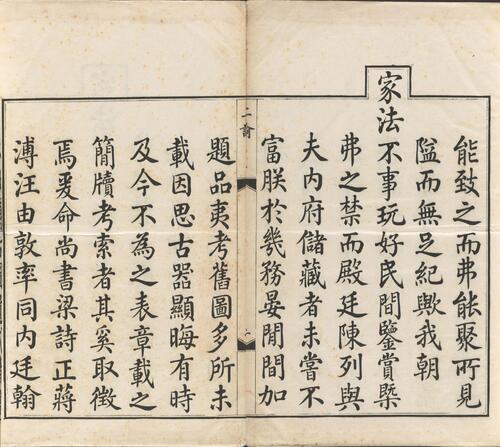 能致之而弗能聚所見
隘而無足紀歟我朝
家法不事玩好民間鑒賞槩
弗之禁而殿廷陳列與
夫内府儲藏者未嘗不
富朕於㡬務晏閒間加
二諭
題品夷考舊圖多所未
載因思古器顯晦有時
及今不為之表章載之
簡牘考索者其奚取徵
焉爰命尚書梁詩正蔣
溥汪由敦率同内廷翰